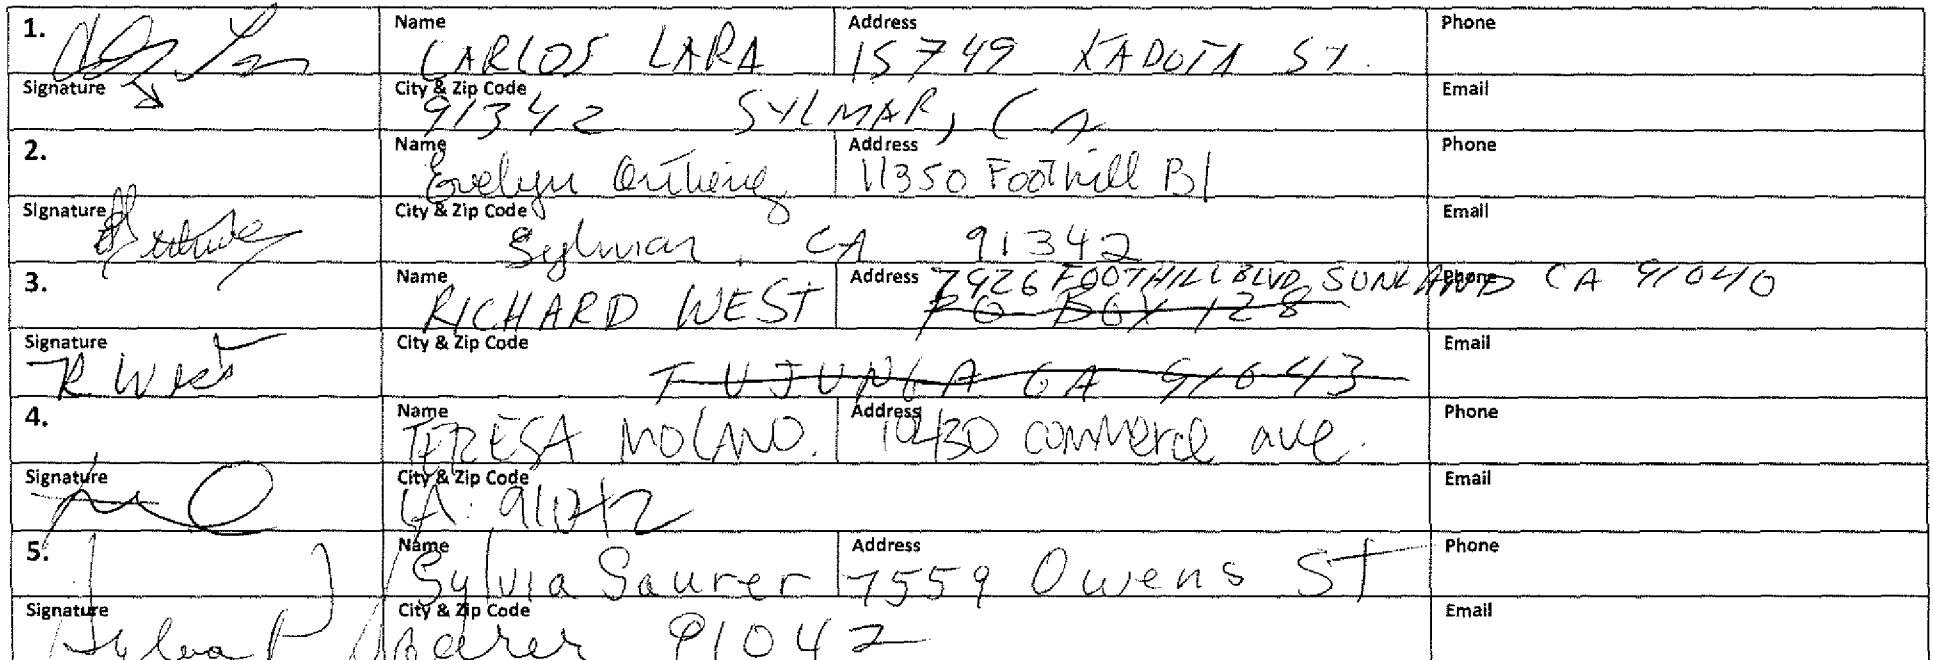 1. Name CARLOS LARA Address 15749 KADOTA ST. Phone
Signature City & Zip Code 91342 SYLMAR, CA Email
2. Name Evelyn Address 11350 Foothill Bl Phone
Signature City & Zip Code Sylmar, CA 91342 Email
3. Name RICHARD WEST Address 7926 FOOTHILL BLVD, SUNLAND CA 91040 Phone
PO BOX 128
Signature R West City & Zip Code TUJUNGA CA 91043 Email
4. Name TERESA MOLANO. Address 10430 commerce ave. Phone
Signature City & Zip Code CA. 91042 Email
5. Name Sylvia Saurer Address 7559 Owens ST Phone
Signature Sylvia P Saurer City & Zip Code 91042 Email